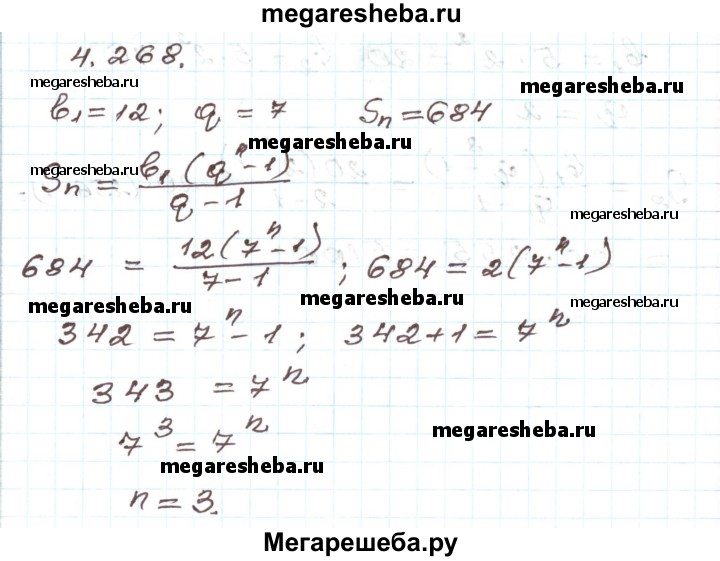 megaresheba.ru
4.268.
megaresheba.ru megaresheba.ru
b₁ = 12; q = 7 Sₙ = 684
megaresheba.ru
megaresheba.ru
Sₙ = b₁(qⁿ - 1) / q - 1
megaresheba.ru
684 = 12(7ⁿ - 1) / 7 - 1 ; 684 = 2(7ⁿ - 1)
megaresheba.ru megaresheba.ru megaresheba.ru
342 = 7ⁿ - 1; 342 + 1 = 7ⁿ
343 = 7ⁿ
7³ = 7ⁿ
megaresheba.ru
megaresheba.ru
n = 3.
Мегарешеба.ру